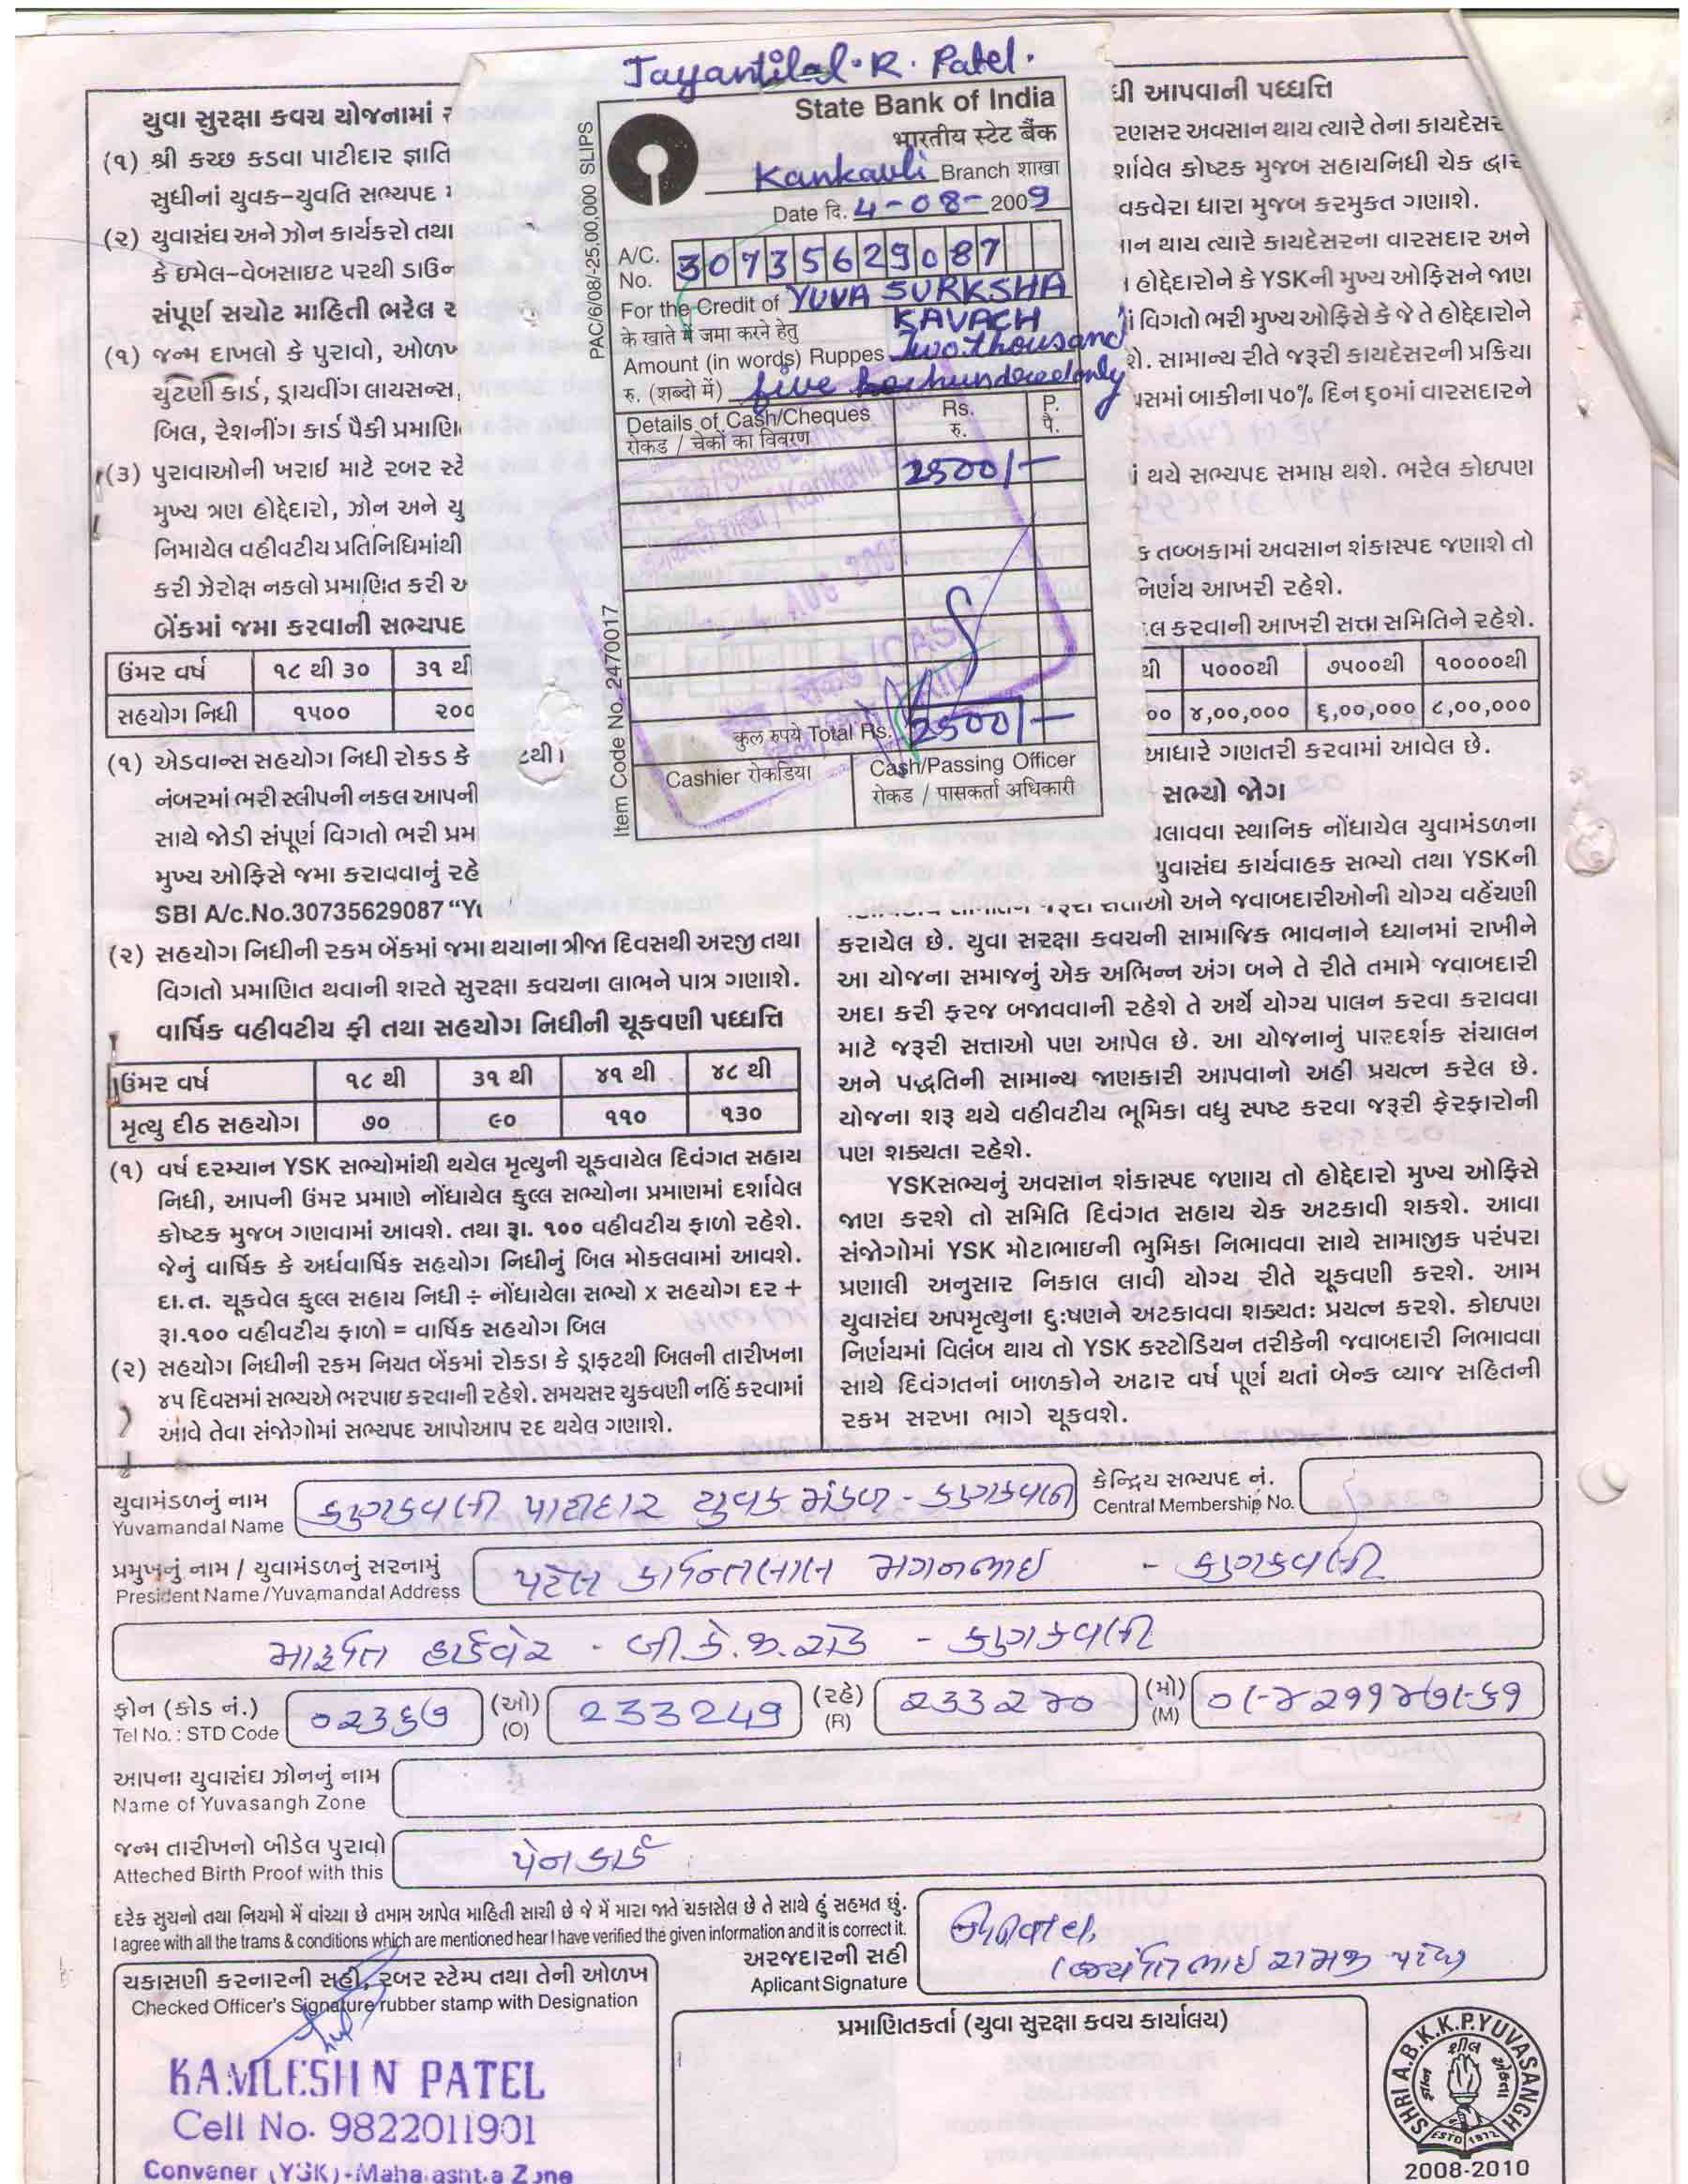 Jayantilal. R. Patel.
State Bank of India
भारतीय स्टेट बैंक
Kankavli Branch शाखा
Date दि. 4-08-2009
A/C. No. 30735629087
For the Credit of YUVA SURKSHA
के खाते में जमा करने हेतु KAVACH
Amount (in words) Ruppes Two thousand
रु. (शब्दो में) five hundered only
Details of Cash/Cheques Rs. P.
रोकड / चेकों का विवरण रु. पै.
2500/-
कुल रुपये Total Rs. 2500/-
Cashier रोकडिया Cash/Passing Officer
रोकड / पासकर्ता अधिकारी
PAC/6/08/-25,00,000 SLIPS
Item Code No. 2470017
યુવા સુરક્ષા કવચ યોજનામાં
(૧) શ્રી કચ્છ કડવા પાટીદાર જ્ઞાતિ
સુધીનાં યુવક-યુવતિ સભ્યપદ
(૨) યુવાસંઘ અને ઝોન કાર્યકરો તથા
કે ઇમેલ-વેબસાઇટ પરથી ડાઉન
સંપૂર્ણ સચોટ માહિતી ભરેલ
(૧) જન્મ દાખલો કે પુરાવો, ઓળખ
ચુંટણી કાર્ડ, ડ્રાયવીંગ લાયસન્સ,
બિલ, રેશનીંગ કાર્ડ પૈકી પ્રમાણિ
(૩) પુરાવાઓની ખરાઇ માટે રબર સ્ટે
મુખ્ય ત્રણ હોદ્દેદારો, ઝોન અને યુ
નિમાયેલ વહીવટીય પ્રતિનિધિમાંથી
કરી ઝેરોક્ષ નકલો પ્રમાણિત કરી
બેંકમાં જમા કરવાની સભ્યપદ
ઉંમર વર્ષ ૧૮ થી ૩૦ ૩૧ થી
સહયોગ નિધી ૧૫૦૦ ૨૦૦
(૧) એડવાન્સ સહયોગ નિધી રોકડ કે
નંબરમાં ભરી સ્લીપની નકલ આપની
સાથે જોડી સંપૂર્ણ વિગતો ભરી પ્રમ
મુખ્ય ઓફિસે જમા કરાવવાનું રહે
SBI A/c.No.30735629087 “Yu
(૨) સહયોગ નિધીની રકમ બેંકમાં જમા થયાના ત્રીજા દિવસથી અરજી તથા
વિગતો પ્રમાણિત થવાની શરતે સુરક્ષા કવચના લાભને પાત્ર ગણાશે.
વાર્ષિક વહીવટીય ફી તથા સહયોગ નિધીની ચૂકવણી પધ્ધતિ
ઉંમર વર્ષ ૧૮ થી ૩૧ થી ૪૧ થી ૪૮ થી
મૃત્યુ દીઠ સહયોગ ૭૦ ૯૦ ૧૧૦ ૧૩૦
(૧) વર્ષ દરમ્યાન YSK સભ્યોમાંથી થયેલ મૃત્યુની ચૂકવાયેલ દિવંગત સહાય
નિધી, આપની ઉંમર પ્રમાણે નોંધાયેલ કુલ્લ સભ્યોના પ્રમાણમાં દર્શાવેલ
કોષ્ટક મુજબ ગણવામાં આવશે. તથા રૂા. ૧૦૦ વહીવટીય ફાળો રહેશે.
જેનું વાર્ષિક કે અર્ધવાર્ષિક સહયોગ નિધીનું બિલ મોકલવામાં આવશે.
દા.ત. ચૂકવેલ કુલ્લ સહાય નિધી ÷ નોંધાયેલા સભ્યો x સહયોગ દર +
રૂા.૧૦૦ વહીવટીય ફાળો = વાર્ષિક સહયોગ બિલ
(૨) સહયોગ નિધીની રકમ નિયત બેંકમાં રોકડા કે ડ્રાફટથી બિલની તારીખના
૪૫ દિવસમાં સભ્યએ ભરપાઇ કરવાની રહેશે. સમયસર ચુકવણી નહિં કરવામાં
આવે તેવા સંજોગોમાં સભ્યપદ આપોઆપ રદ થયેલ ગણાશે.
ધી આપવાની પધ્ધતિ
રણસર અવસાન થાય ત્યારે તેના કાયદેસર
ર્શાવેલ કોષ્ટક મુજબ સહાયનિધી ચેક દ્વાર
વકવેરા ધારા મુજબ કરમુકત ગણાશે.
ાન થાય ત્યારે કાયદેસરના વારસદાર અને
હોદ્દેદારોને કે YSKની મુખ્ય ઓફિસને જાણ
વિગતો ભરી મુખ્ય ઓફિસે કે જે તે હોદ્દેદારોને
શે. સામાન્ય રીતે જરૂરી કાયદેસરની પ્રક્રિયા
ાસમાં બાકીના ૫૦% દિન ૬૦માં વારસદારને
થયે સભ્યપદ સમાપ્ત થશે. ભરેલ કોઇપણ
ક તબ્બકામાં અવસાન શંકાસ્પદ જણાશે તો
નિર્ણય આખરી રહેશે.
લ કરવાની આખરી સત્તા સમિતિને રહેશે.
થી ૫૦૦૦થી ૭૫૦૦થી ૧૦૦૦૦થી
૦૦ ૪,૦૦,૦૦૦ ૬,૦૦,૦૦૦ ૮,૦૦,૦૦૦
આધારે ગણતરી કરવામાં આવેલ છે.
સભ્યો જોગ
ચલાવવા સ્થાનિક નોંધાયેલ યુવામંડળના
યુવાસંઘ કાર્યવાહક સભ્યો તથા YSKની
જરૂરી સત્તાઓ અને જવાબદારીઓની યોગ્ય વહેંચણી
કરાયેલ છે. યુવા સરક્ષા કવચની સામાજિક ભાવનાને ધ્યાનમાં રાખીને
આ યોજના સમાજનું એક અભિન્ન અંગ બને તે રીતે તમામે જવાબદારી
અદા કરી ફરજ બજાવવાની રહેશે તે અર્થે યોગ્ય પાલન કરવા કરાવવા
માટે જરૂરી સત્તાઓ પણ આપેલ છે. આ યોજનાનું પારદર્શક સંચાલન
અને પદ્ધતિની સામાન્ય જાણકારી આપવાનો અહી પ્રયત્ન કરેલ છે.
યોજના શરૂ થયે વહીવટીય ભૂમિકા વધુ સ્પષ્ટ કરવા જરૂરી ફેરફારોની
પણ શક્યતા રહેશે.
YSKસભ્યનું અવસાન શંકાસ્પદ જણાય તો હોદ્દેદારો મુખ્ય ઓફિસે
જાણ કરશે તો સમિતિ દિવંગત સહાય ચેક અટકાવી શકશે. આવા
સંજોગોમાં YSK મોટાભાઇની ભુમિકા નિભાવવા સાથે સામાજીક પરંપરા
પ્રણાલી અનુસાર નિકાલ લાવી યોગ્ય રીતે ચૂકવણી કરશે. આમ
યુવાસંઘ અપમૃત્યુના દુઃષણને અટકાવવા શક્યતઃ પ્રયત્ન કરશે. કોઇપણ
નિર્ણયમાં વિલંબ થાય તો YSK કસ્ટોડિયન તરીકેની જવાબદારી નિભાવવા
સાથે દિવંગતનાં બાળકોને અઢાર વર્ષ પૂર્ણ થતાં બેન્ક વ્યાજ સહિતની
રકમ સરખા ભાગે ચૂકવશે.
યુવામંડળનું નામ કણકવલી પાટીદાર યુવક મંડળ - કણકવલી કેન્દ્રિય સભ્યપદ નં.
Yuvamandal Name Central Membership No.
પ્રમુખનું નામ / યુવામંડળનું સરનામું પટેલ કાન્તિલાલ મગનભાઇ - કણકવલી
President Name/Yuvamandal Address
મારૂતિ હાર્ડવેર - કણકવલી
ફોન (કોડ નં.) ૦૨૩૬૭ (ઓ) 233249 (રહે) ૨૩૩૨૪૦ (મો)
Tel No. : STD Code (O) (R) (M)
આપના યુવાસંઘ ઝોનનું નામ
Name of Yuvasangh Zone
જન્મ તારીખનો બીડેલ પુરાવો પેનકાર્ડ
Atteched Birth Proof with this
દરેક સુચનો તથા નિયમો મેં વાંચ્યા છે તમામ આપેલ માહિતી સાચી છે જે મેં મારા જાતે ચકાસેલ છે તે સાથે હું સહમત છું.
I agree with all the trams & conditions which are mentioned hear I have verified the given information and it is correct it.
અરજદારની સહી
Aplicant Signature
(જયંતિભાઇ રામજી પટેલ)
ચકાસણી કરનારની સહી, રબર સ્ટેમ્પ તથા તેની ઓળખ
Checked Officer's Signature rubber stamp with Designation
KAMLESH N PATEL
Cell No. 9822011901
Convener (YSK)-Maharashtra Zone
પ્રમાણિતકર્તા (યુવા સુરક્ષા કવચ કાર્યાલય)
SHRI A.B.K.K.P. YUVASANGH
ESTD 1972
2008-2010